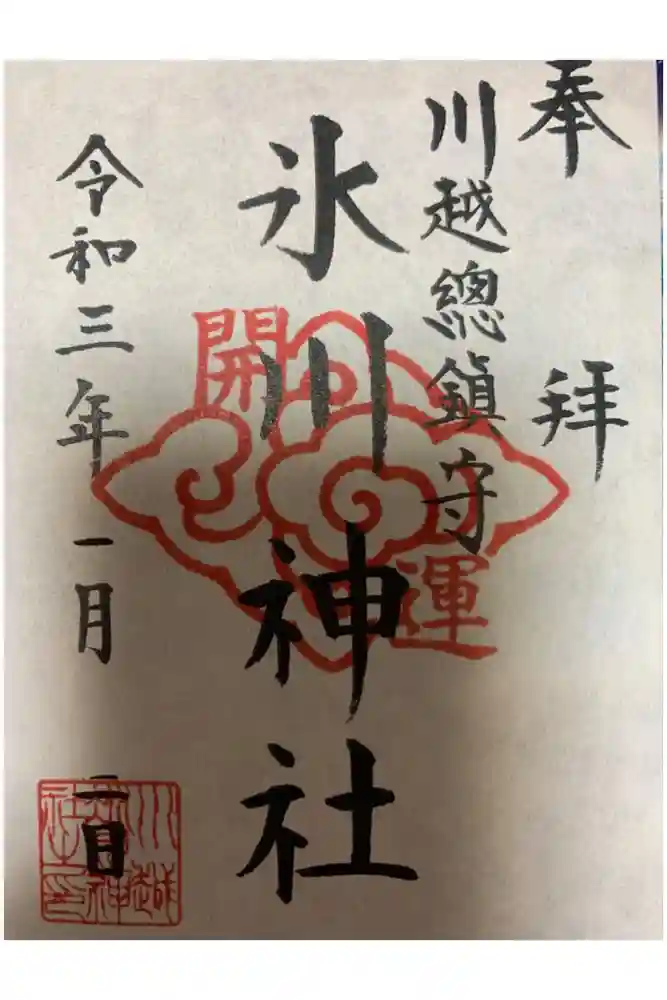 奉拝
川越總鎮守
氷川神社
開運
令和三年一月二日
川越
神
社之印